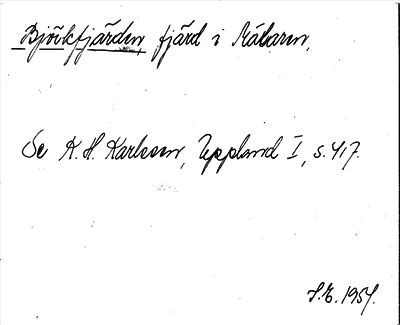 Björkfjärden, fjärd i Mälaren.
Se K. H. Karlsson, Uppland I, s. 417.
S.E. 1954.